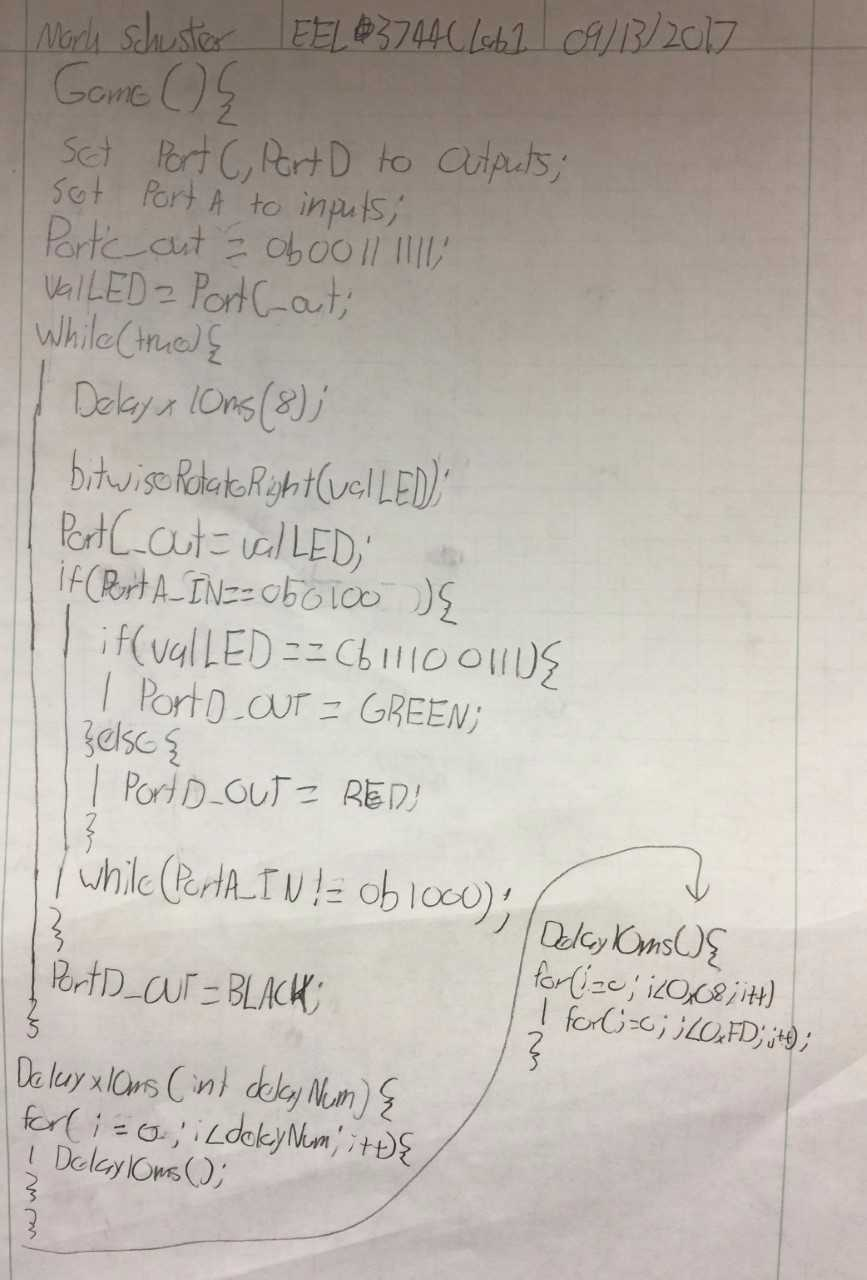 Mark Schuster EEL3744C Lab1 09/13/2017
Game(){
Set PortC, PortD to outputs;
Set Port A to inputs;
PortC_out = 0b00111111;
valLED = PortC_out;
While(true){
Delayx10ms(8);
bitwiseRotateRight(valLED);
PortC_out = valLED;
if(PortA_IN==0b0100){
if(valLED == 0b11100111){
PortD_OUT = GREEN;
}else{
PortD_OUT = RED;
}
while(PortA_IN != 0b1000);
}
PortD_OUT = BLACK;
}
Delayx10ms(int delayNum){
for(i=0; i<delayNum; i++){
Delay10ms();
}
}
Delay10ms(){
for(i=0; i<0xC8; i++)
for(j=0; j<0xFD; j++);
}